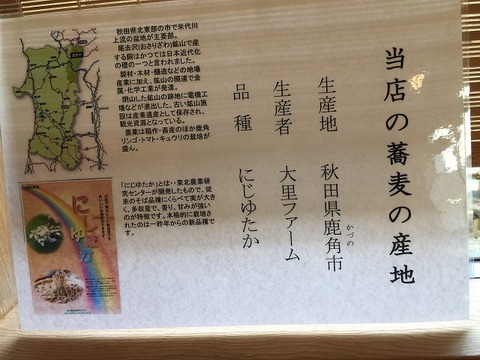 当店の蕎麦の産地
生産地 秋田県鹿角市
かづの
生産者 大里ファーム
品種 にじゆたか
秋田県北東部の市で米代川
上流の盆地が主要部。
尾去沢(おさりざわ)鉱山で産
する銅はかつては日本近代化
の礎の一つと言われました。
製材・木材・醸造などの地場
産業に加え、鉱山の関連で金
属・化学工業が発達。
閉山した鉱山の跡地に電機工
場などが進出した。古い鉱山施
設は産業遺産として保存され、
観光資源となっている。
農業は稲作・畜産のほか鹿角
リンゴ・トマト・キュウリの栽培が
盛ん。
「にじゆたか」とは・・東北農業研
究センターが開発したもので、従
来のそば品種にくらべて実が大き
く、多収量で、香り、甘みが強い
のが特徴です。本格的に栽培さ
れたのは一昨年からの新品種で
す。
にじゆたか